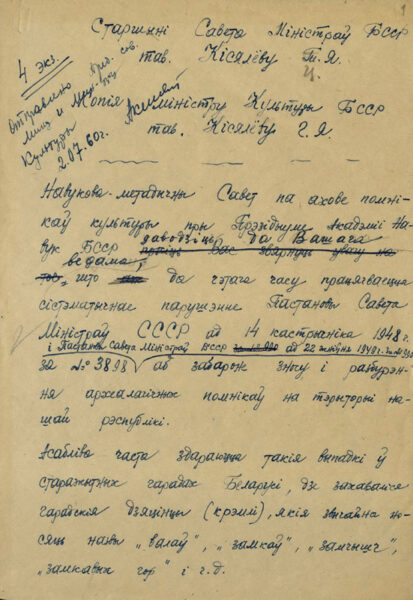 1
Старшыні Савета Міністраў БССР
тав. Кісялёву Т.Я.
4 экз.
Отправлено през. сов.
мин и Мин-ру
Культуры
2.07.60г.
Копія Міністру Культуры БССР
тав. Кісялёву Г.Я.
Навукова-метадычны Савет па ахове помні-
каў культуры пры Прэзідыуме Акадэміі На-
вук БССР даводзіць да Вашага
ведама, што да гэтага часу працягваецца
сістэматычнае парушэнне Пастановы Савета
Міністраў СССР ад 14 кастрычніка 1948 г.
і Пастановы Савета Міністраў БССР ад 22 1949 г.
за № 3898 аб забароне зносу і разбурэн-
ня археалагічных помнікаў на тэрыторыі на-
шай рэспублікі.
Асабліва часта здараюцца такія выпадкі ў
старажытных гарадах Беларусі, дзе захаваліся
гарадскія дзяцінцы (крэмлі), якія звычайна но-
сяць назвы „валаў", „замкаў", „замчышч",
„замкавых гор" і г.д.